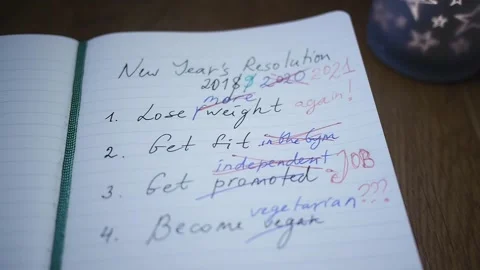 New Year's Resolution
2018 9 2020 2021
more
1. Lose weight again!
2. Get fit in the Gym
independent
3. Get promoted JOB
vegetarian???
4. Become vegan